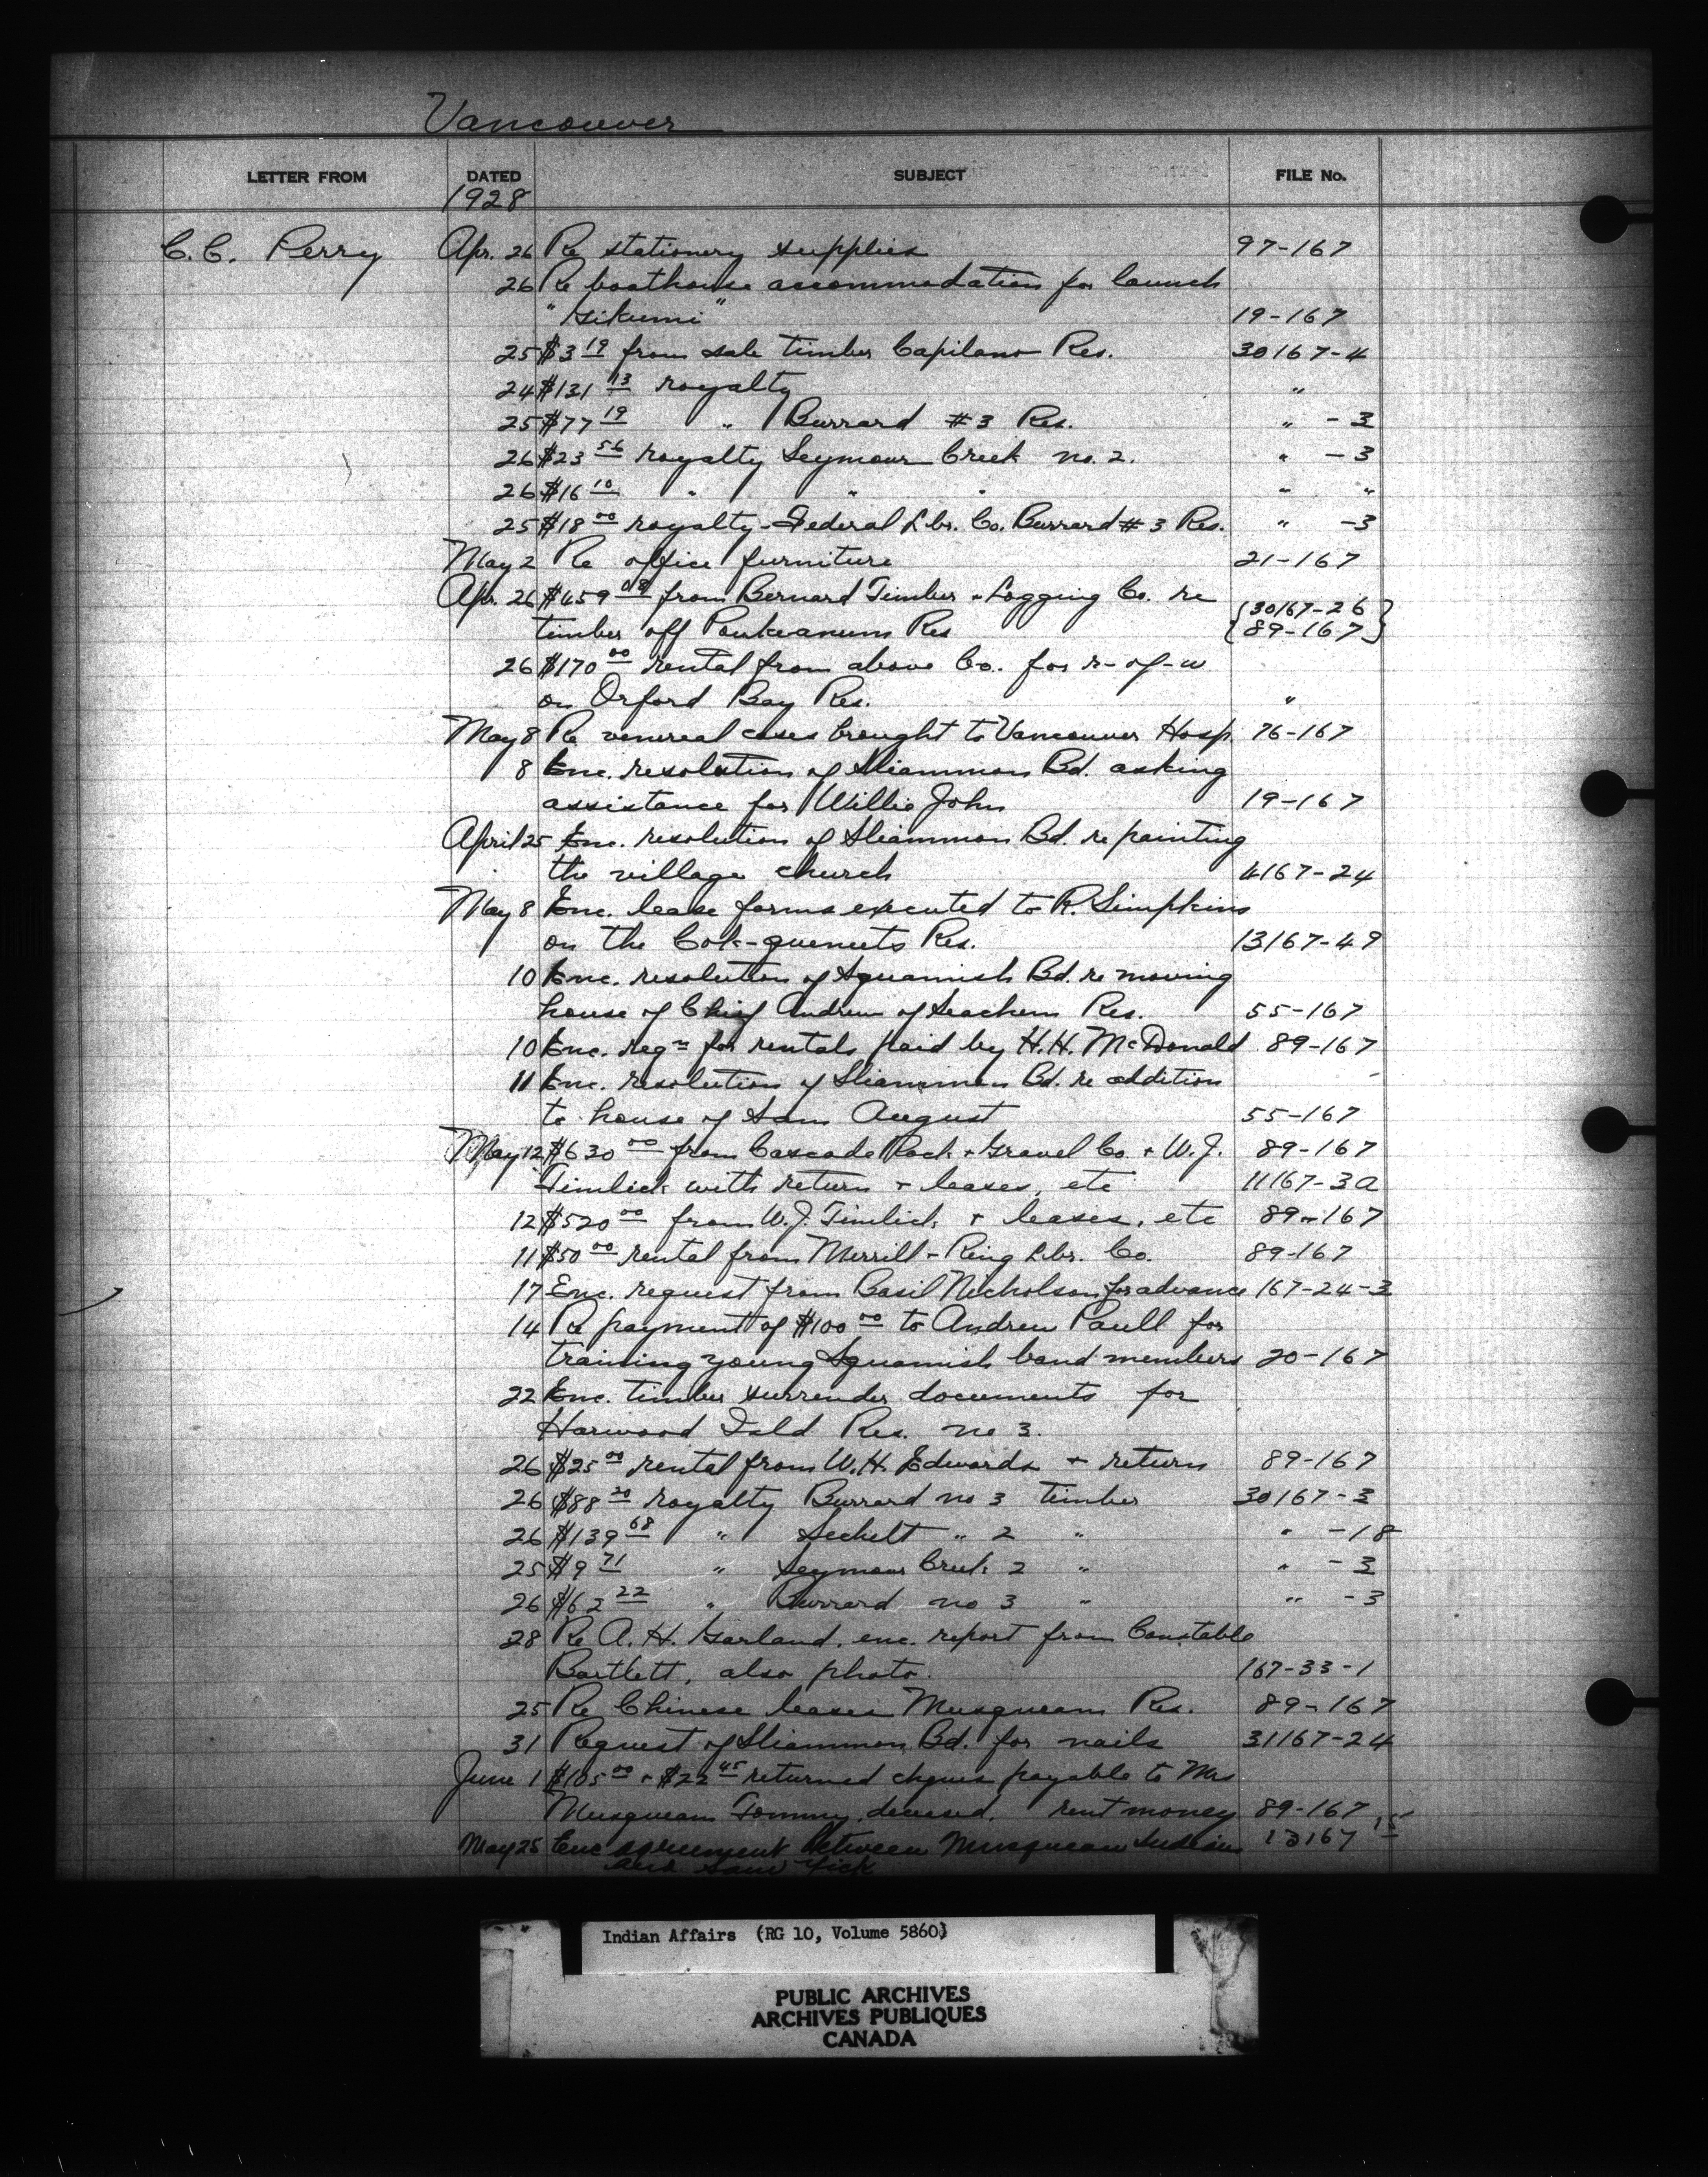 Vancouver
LETTER FROM DATED SUBJECT FILE No.
1928
C.C. Perry Apr. 26 Re stationery supplies 97-167
26 Re boathouse accommodation for launch
"Gikumi" 19-167
25 $3 19 from sale timber Capilano Res. 30167-4
24 $131 13 royalty "
25 $77 19 " Burrard #3 Res. " -3
26 $23 56 royalty Seymour Creek no. 2. " -3
26 $16 10 " " " " "
25 $18 00 royalty-Federal Lbr. Co. Burrard #3 Res. " -3
May 2 Re office furniture 21-167
Apr. 26 $459 08 from Bernard Timber & Logging Co. re {30167-26}
timber off Res {89-167}
26 $170 00 rental from above Co. for r-of-w
on Orford Bay Res. "
May 8 Re venereal cases brought to Vancouver Hosp. 76-167
8 Enc. resolution of Sliammon Bd. asking
assistance for Willie John 19-167
April 25 Enc. resolution of Sliammon Bd. re painting
the village church 4167-24
May 8 Enc. lease forms executed to R. Simpkins
on the Cok-queneets Res. 13167-49
10 Enc. resolution of Squamish Bd. re moving
house of Chief Andrew of Seachem Res. 55-167
10 Enc. reqn for rentals paid by H.H. McDonald 89-167
11 Enc. resolution of Sliammon Bd. re addition
to house of Sam August 55-167
May 12 $630 00 from Cascade Rock & Gravel Co. & W.J. 89-167
Timlick with return & leases, etc 11167-3a
12 $520 00 from W.J. Timlick & leases, etc 89-167
11 $50 00 rental from Merrill-Ring Lbr. Co. 89-167
17 Enc. request from Basil Nicholson for advance 167-24-3
14 Re payment of $100 00 to Andrew Paull for
training young Squamish band members 20-167
22 Enc. timber surrender documents for
Harwood Isld Res. no 3.
26 $25 00 rental from W.H. Edwards & return 89-167
26 $88 20 royalty Burrard no 3 timber 30167-3
26 $139 68 " Sechelt " 2 " " -18
25 $9 71 " Seymour Creek 2 " " -3
26 $62 22 " Burrard no 3 " " -3
28 Re A.H. Garland, enc. report from Constable
Bartlett, also photo. 167-33-1
25 Re Chinese leases Musqueam Res. 89-167
31 Request of Sliammon Bd. for nails 31167-24
June 1 $105 00 & $22 45 returned cheques payable to Mrs
Musqueam Tommy, deceased, rent money 89-167
May 25 Enc agreement between Musqueam Indians 13167 15
and Sam Yick
Indian Affairs (RG 10, Volume 5860)
PUBLIC ARCHIVES
ARCHIVES PUBLIQUES
CANADA